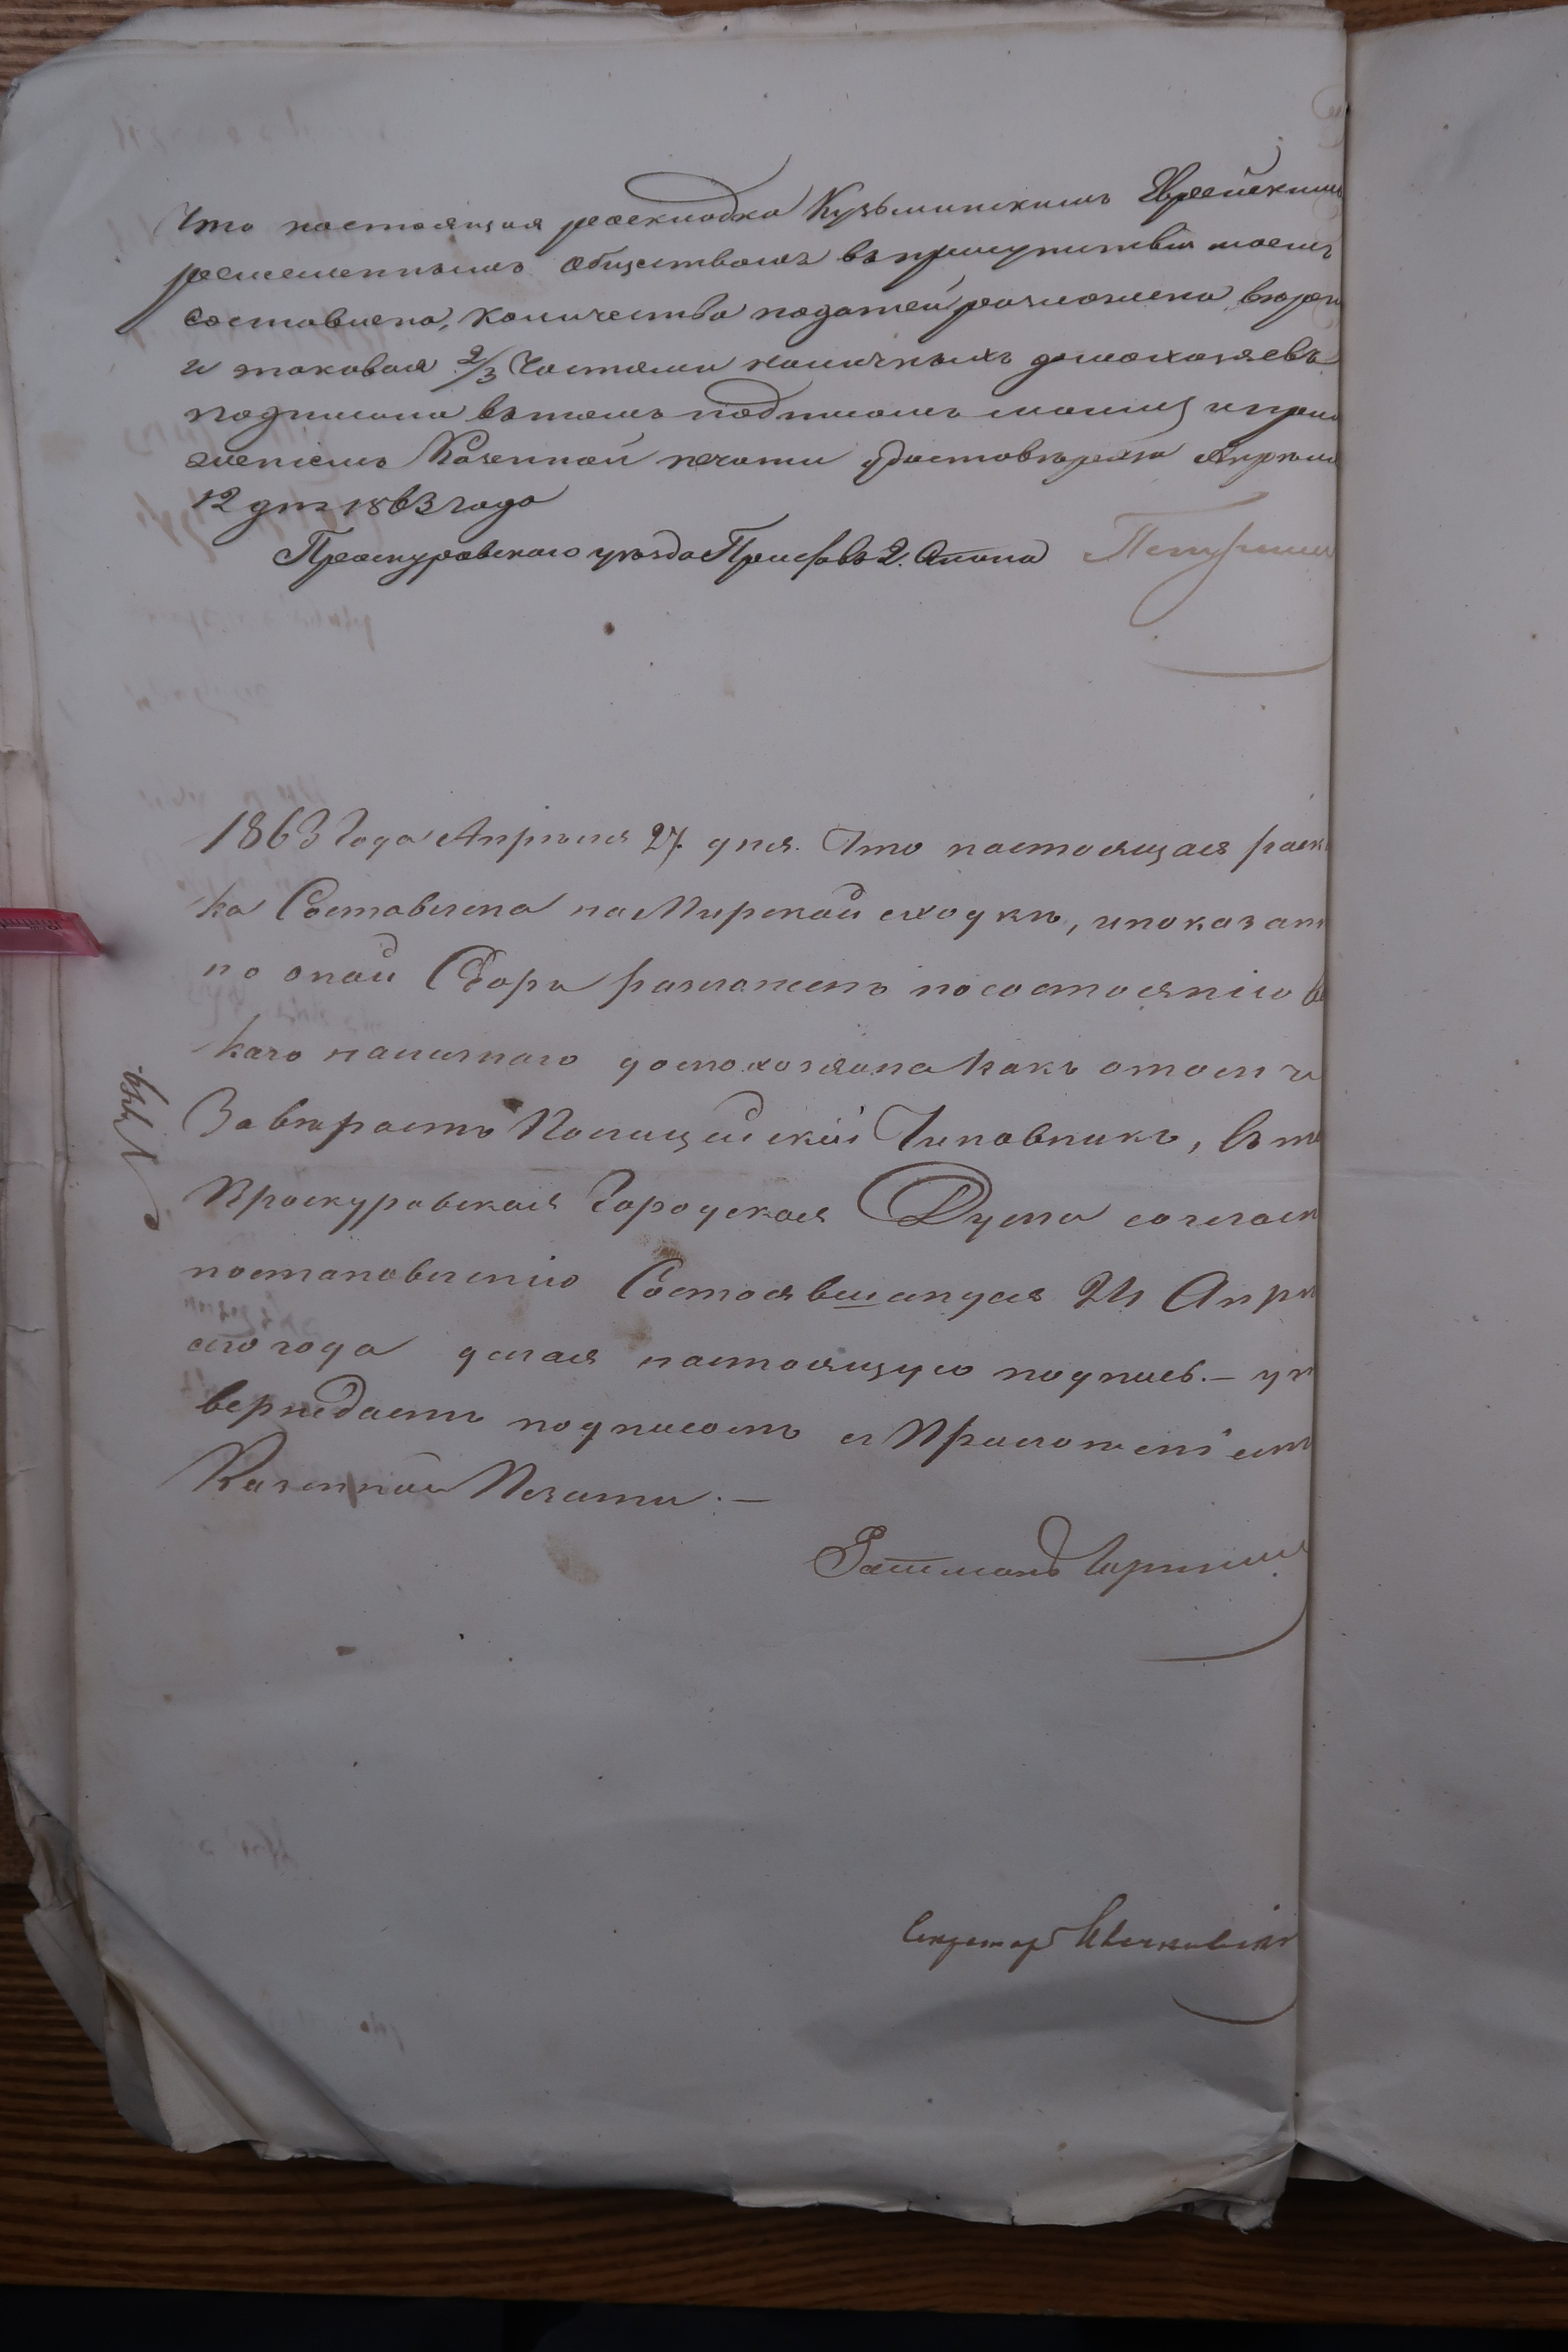 Что настоящая раскладка Кузьминскимъ Еврейскимъ
ремесленнымъ обществомъ въ присутствіи моемъ
составлена, количество податей разложено
и таковая 2/3 частями наличныхъ домохозяевъ
подписана въ томъ подписомъ моимъ и прило
женіемъ Казенной печати удостовѣряю Апрѣля
12 дня 1863 года
Проскуровскаго уѣзда Приставъ 2. Стана
1863 Года Апрѣля 27 дня. Что настоящая раск
ка Составлена на Мирской сходкѣ, и показан
по оной Сборъ разложенъ по состоянію
каго наличнаго домохозяина какъ о томъ и
Завѣряетъ Полицейскій Чиновникъ, въ то
Проскуровская Городская Дума соглас
постановленію Состоявшагуся 24 Апрѣ
сего года делая настоящую подпись. — ут
верждаетъ подписомъ съ Приложеніемъ
Казенной Печати. —
Ратманъ
Секретарь